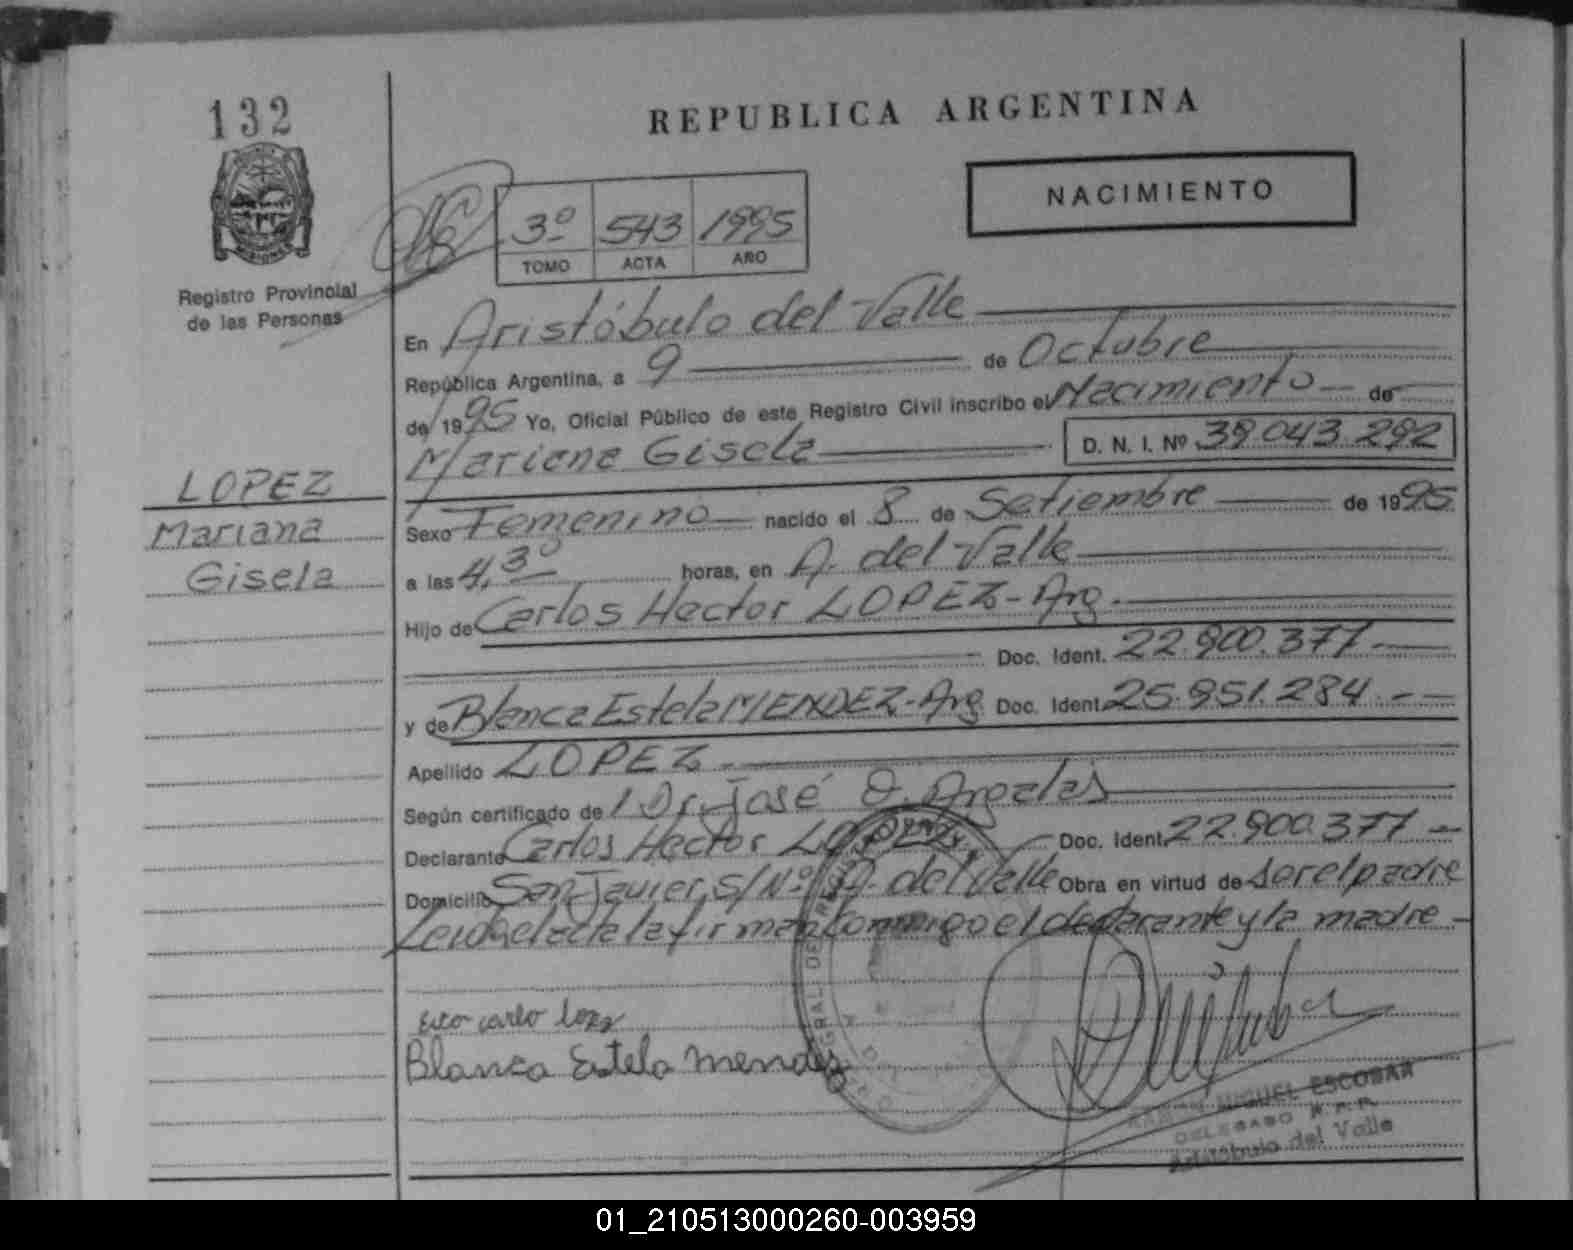 132
REPUBLICA ARGENTINA
NACIMIENTO
3º 543 1995
TOMO ACTA AÑO
Registro Provincial
de las Personas
En Aristóbulo del Valle
República Argentina, a 9 de Octubre
de 1995 Yo, Oficial Público de este Registro Civil inscribo el Nacimiento de
Mariana Gisela D. N. I. Nº 39.043.292
LOPEZ
Mariana
Gisela
Sexo Femenino nacido el 8 de Setiembre de 1995
a las 4,30 horas, en A. del Valle
Hijo de Carlos Hector LOPEZ - Arg.
Doc. Ident. 22.900.377
y de Blanca Estela MENDEZ - Arg. Doc. Ident. 25.951.284
Apellido LOPEZ
Según certificado de Dr. José O.
Declarante Carlos Hector LOPEZ Doc. Ident. 22.900.377
Domicilio San Javier, S/Nº A. del Valle Obra en virtud de ser el padre
Leida el acta la firman conmigo el declarante y la madre
Blanca Estela Mendez
MIGUEL ESCOBAR
DELEGADO R.P.P.
Aristóbulo del Valle
01_210513000260-003959